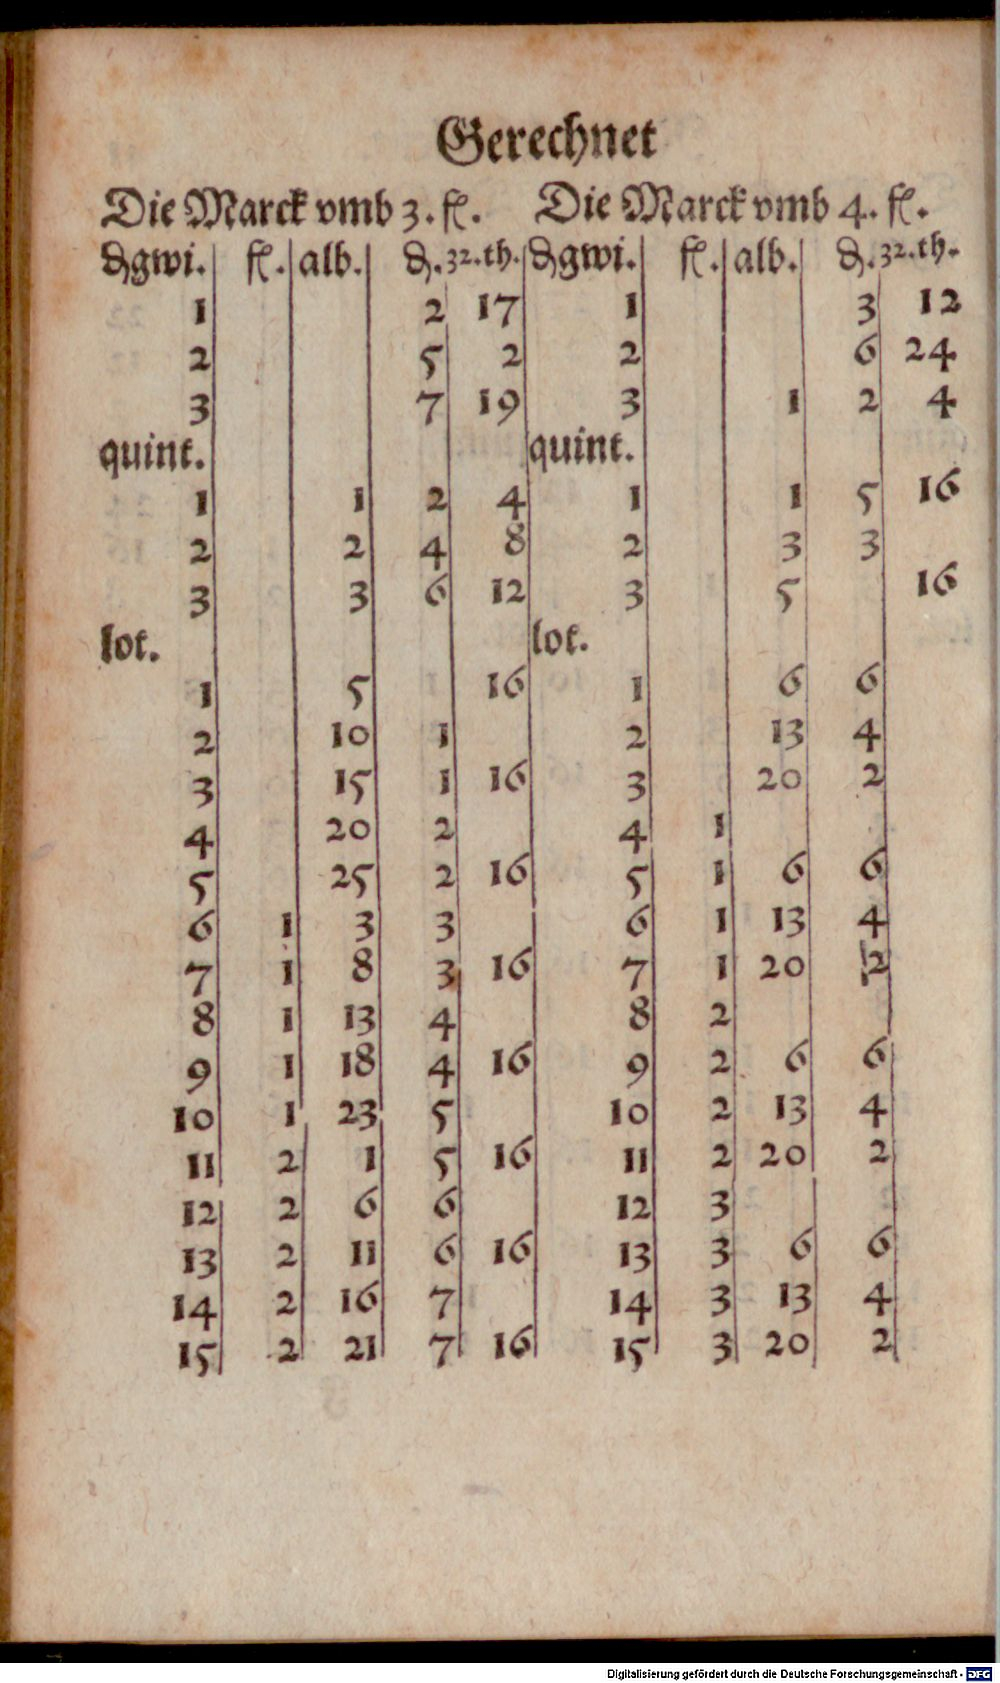 Gerechnet
Die Marck vmb 3. fl. Die Marck vmb 4. fl.
₰gwi. fl. alb. ₰. 32.th. ₰gwi. fl. alb. ₰. 32.th.
1 2 17 1 3 12
2 5 2 2 6 24
3 7 19 3 1 2 4
quint. quint.
1 1 2 4 1 1 5 16
2 2 4 8 2 3 3
3 3 6 12 3 5 16
lot. lot.
1 5 16 1 6 6
2 10 1 2 13 4
3 15 1 16 3 20 2
4 20 2 4 1
5 25 2 16 5 1 6 6
6 1 3 3 6 1 13 4
7 1 8 3 16 7 1 20 2
8 1 13 4 8 2
9 1 18 4 16 9 2 6 6
10 1 23 5 10 2 13 4
11 2 1 5 16 11 2 20 2
12 2 6 6 12 3
13 2 11 6 16 13 3 6 6
14 2 16 7 14 3 13 4
15 2 21 7 16 15 3 20 2
Digitalisierung gefördert durch die Deutsche Forschungsgemeinschaft - DFG